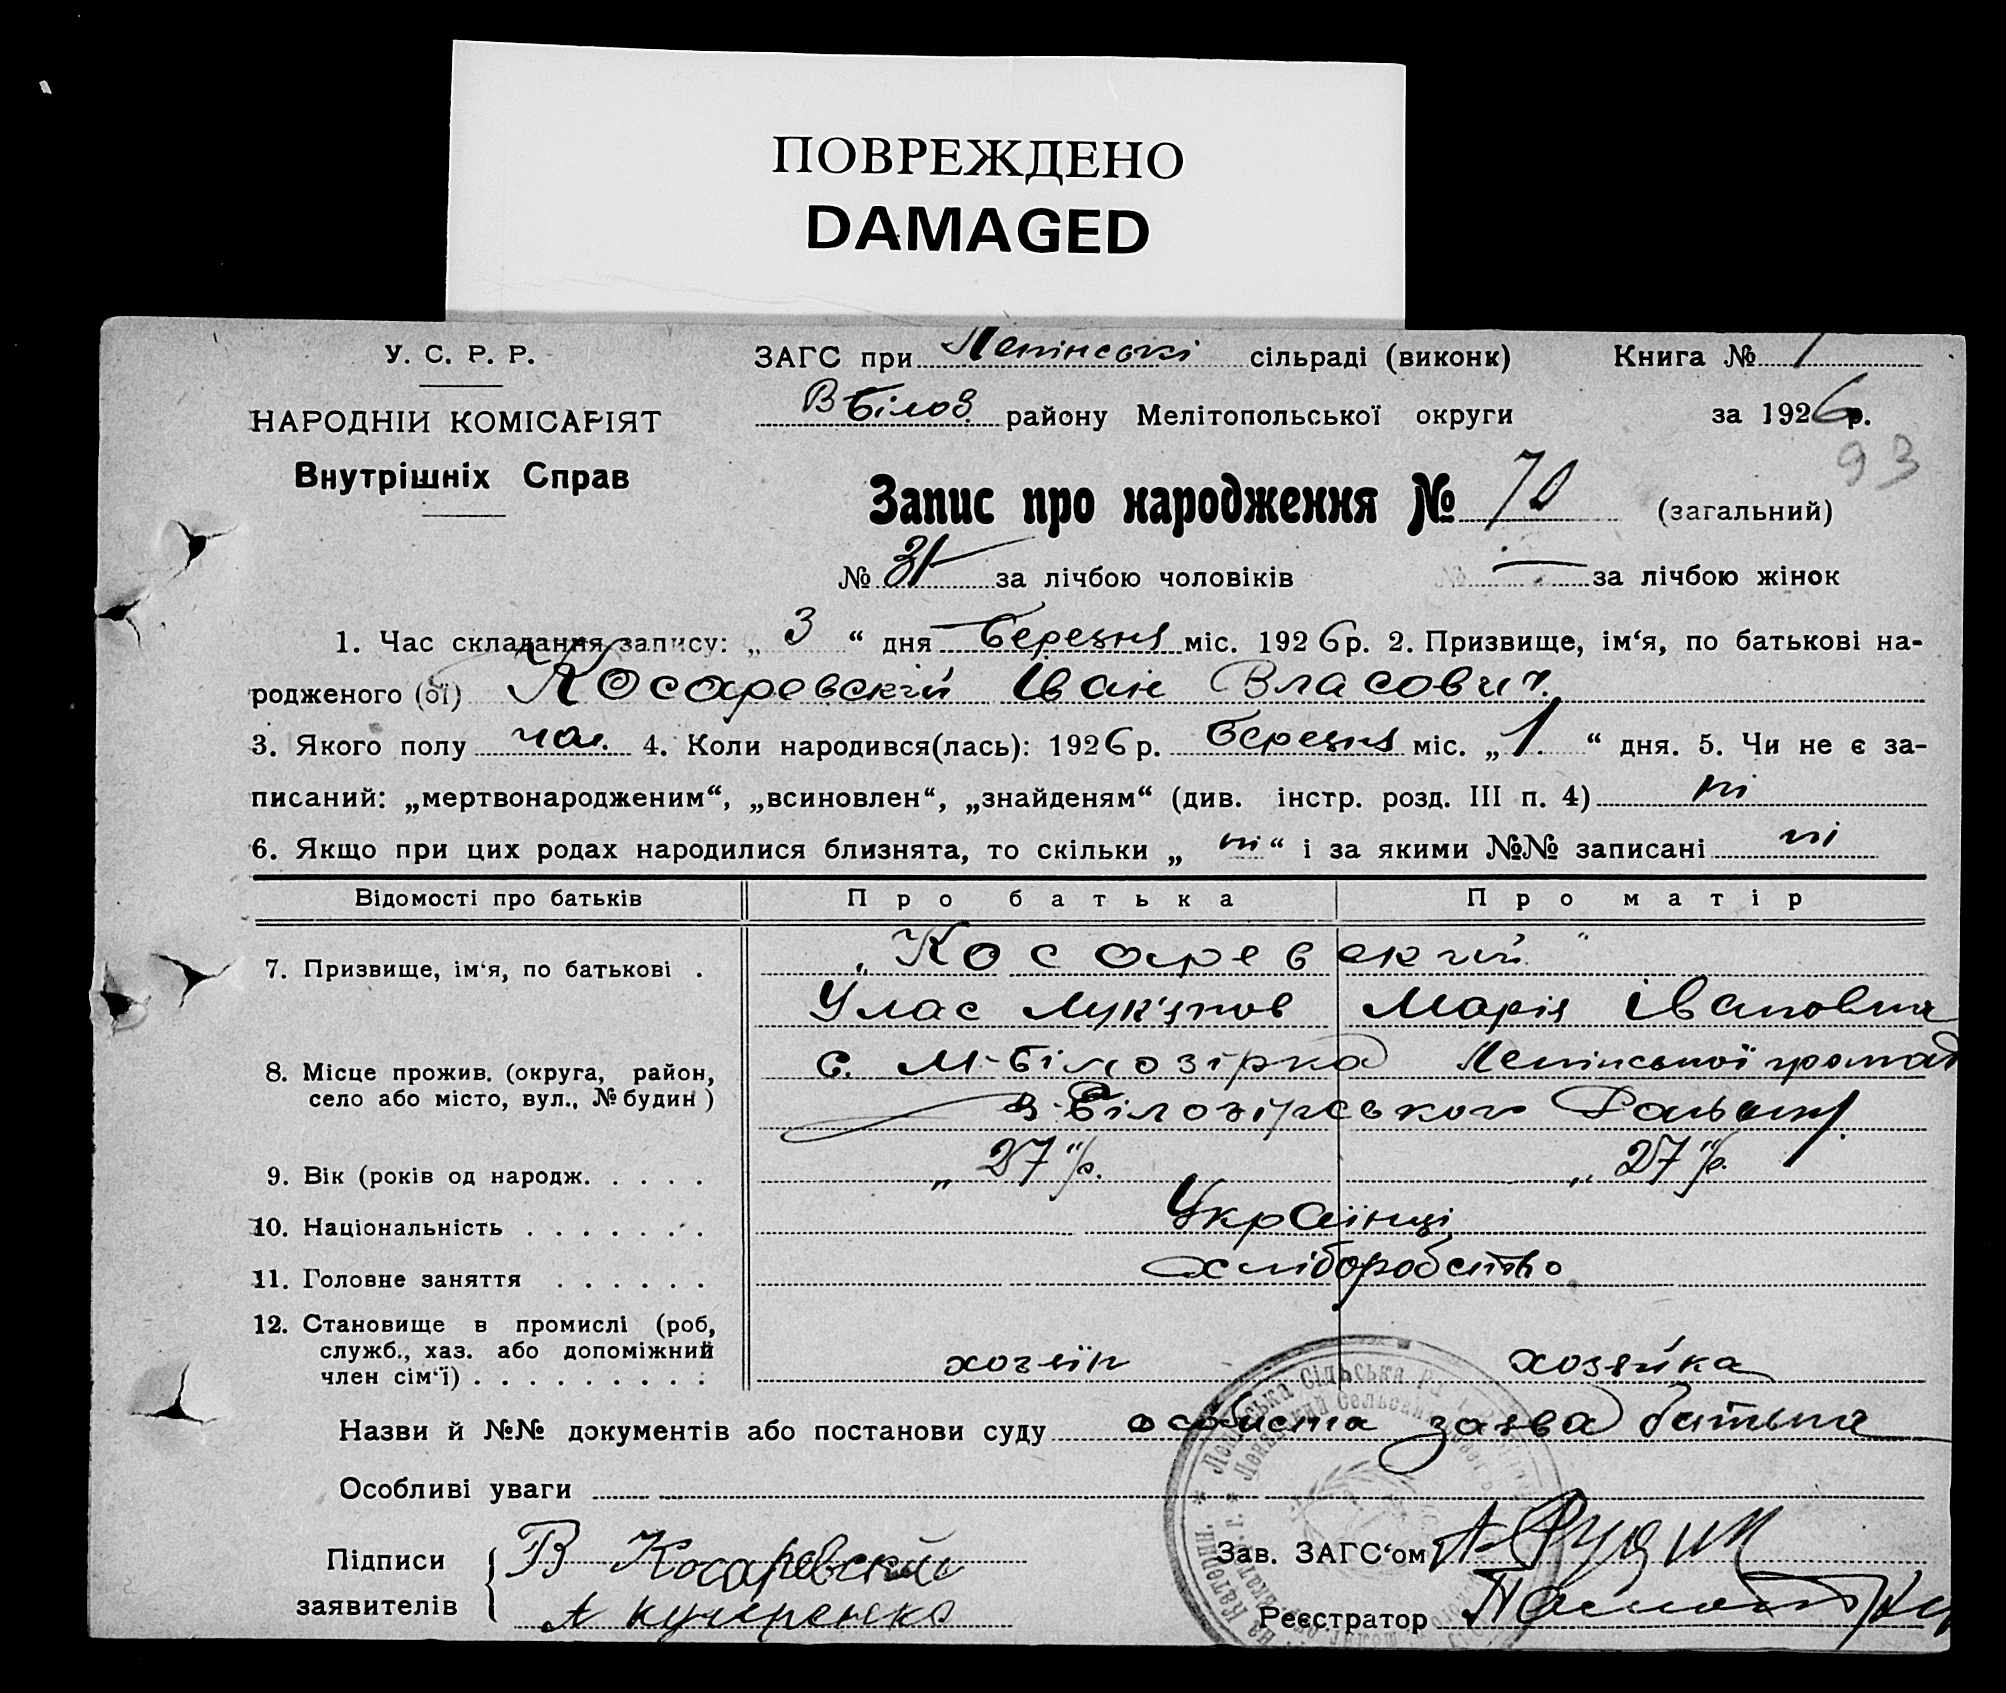 ПОВРЕЖДЕНО
DAMAGED
У. С. Р. Р.
НАРОДНІЙ КОМІСАРІЯТ
Внутрішніх Справ
ЗАГС при Ленінські сільраді (виконк) Книга № 1
В Білоз. району Мелітопольської округи за 1926 р.
93
Запис про народження № 70 (загальний)
№ 31 за лічбою чоловіків № — за лічбою жінок
1. Час складання запису: „ 3 “ дня березня міс. 1926 р. 2. Призвище, ім‘я, по батькові на-
родженого (ої) Косаревскій Іван Власович.
3. Якого полу чол. 4. Коли народився(лась): 1926 р. березня міс. „ 1 “ дня. 5. Чи не є за-
писаний: „мертвонародженим“, „всиновлен“, „знайденям“ (див. інстр. розд. III п. 4) ні
6. Якщо при цих родах народилися близнята, то скільки „ ні “ і за якими №№ записані ні
Відомості про батьків Про батька Про матір
7. Призвище, ім‘я, по батькові . „Косаревский“
Улас Лук'янов Марія Івановна
8. Місце прожив. (округа, район, с. М-Білозірка Ленінської громад
село або місто, вул., № будин) В-Білозірського Району.
9. Вік (років од народж. . . . . „27“ р. „27“ р.
10. Національність . . . . . . . Українці
11. Головне заняття . . . . . . хліборобство
12. Становище в промислі (роб,
служб., хаз. або допоміжний
член сім‘ї) . . . . . . . . . : хозяїн хозяйка
Назви й №№ документів або постанови суду особиста заява батька
Особливі уваги
Підписи В Косаревский Зав. ЗАГС‘ом А Рудик
заявителів А Кучеренко Реєстратор